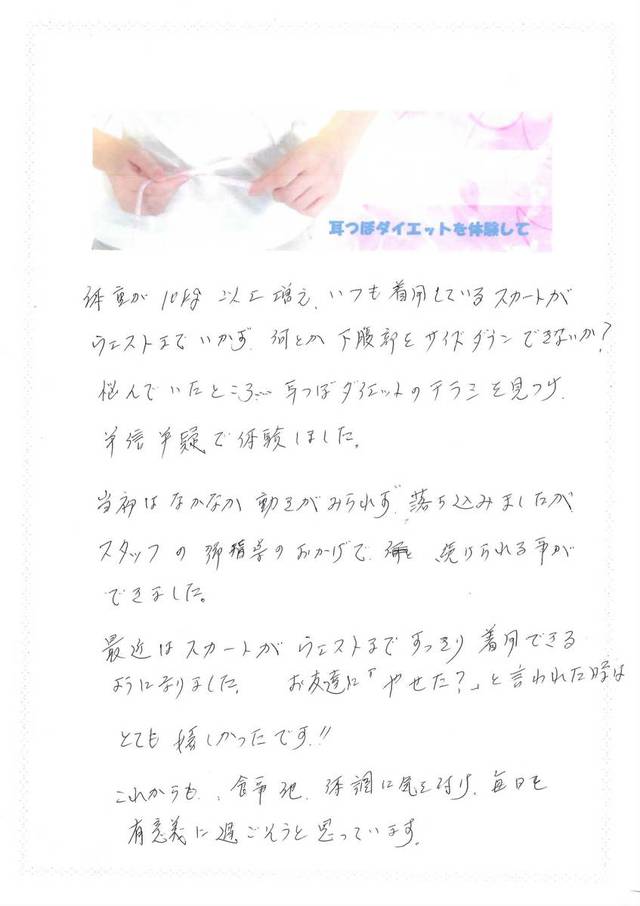 耳つぼダイエットを体験して
体重が10kg以上増え、いつも着用しているスカートが
ウェストまでいかず、何とか下腹部をサイズダウンできないか?
悩んでいたところ… 耳つぼダイエットのチラシを見つけ、
半信半疑で体験しました。
当初はなかなか動きがみられず、落ち込みましたが
スタッフの御指導のおかげで、続けられる事が
できました。
最近はスカートがウェストまですっきり着用できる
ようになりました。 お友達に「やせた?」と言われた時は
とても嬉しかったです!!
これからも、食事他、体調に気を付け、毎日を
有意義に過ごそうと思っています。